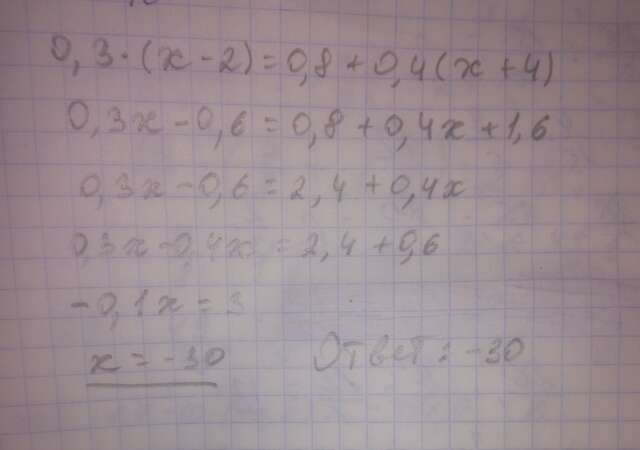 0,3·(x-2)=0,8+0,4(x+4)
0,3x-0,6=0,8+0,4x+1,6
0,3x-0,6=2,4+0,4x
0,3x-0,4x=2,4+0,6
-0,1x=3
x=-30 Ответ: -30